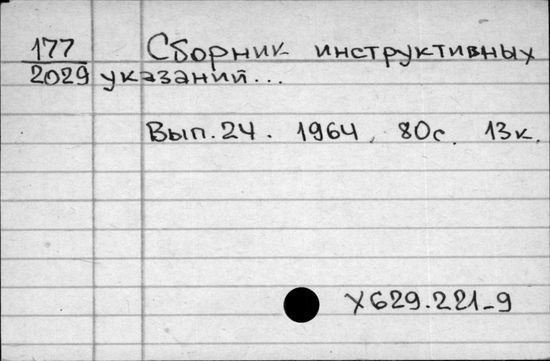 177 Сборник инструктивных
2029 указаний...
Вып. 24. 1964, 80с. 13к.
X629.221-9